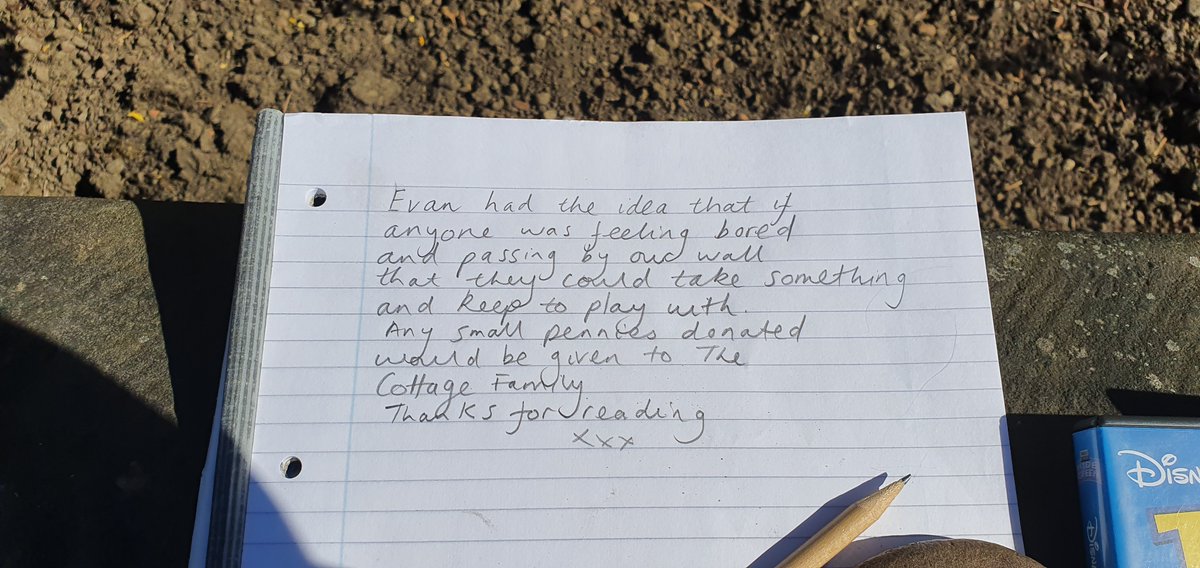 Evan had the idea that if
anyone was feeling bored
and passing by our wall
that they could take something
and keep to play with.
Any small pennies donated
would be given to The
Cottage Family
Thanks for reading
xxx
DISN